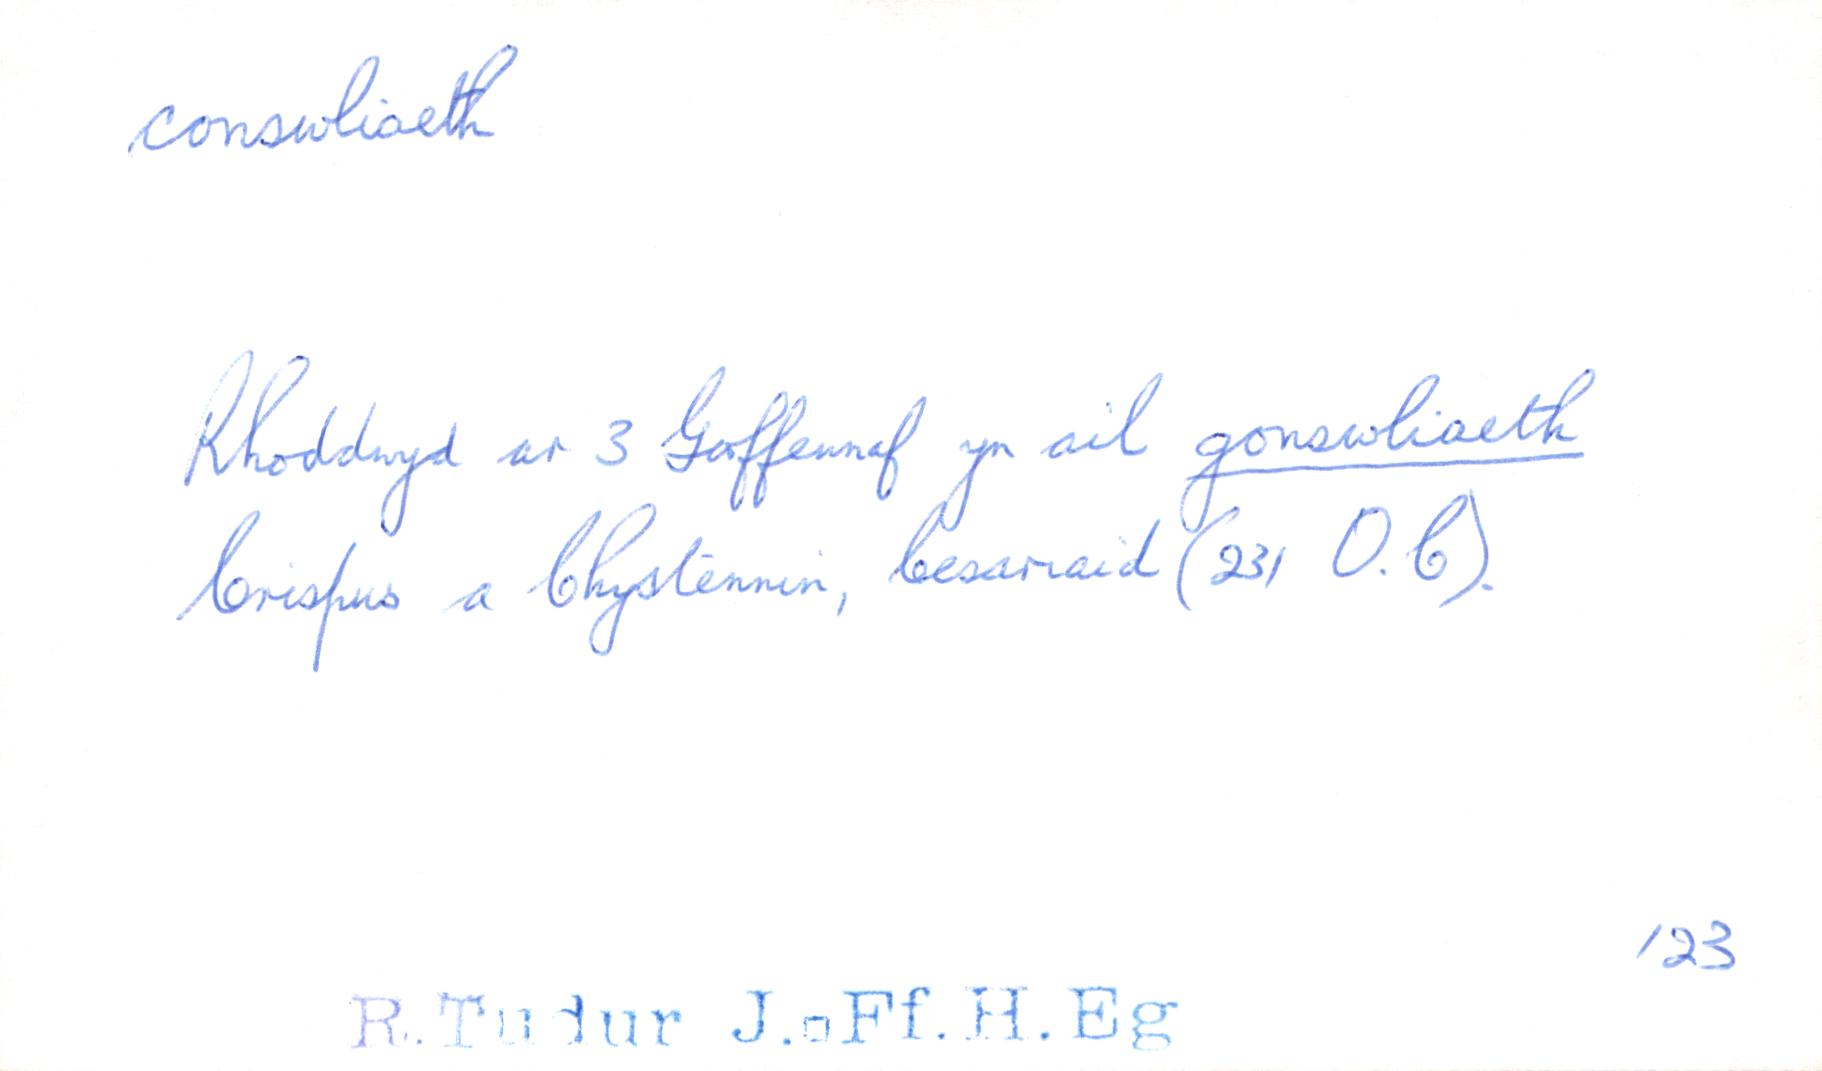 conswliaeth
Rhoddwyd ar 3 Gorffennaf yn ail gonswliaeth
Crispus a Chystennin, Cesariaid (231 O.C).
123
R.Tudur J. Ff.H.Eg